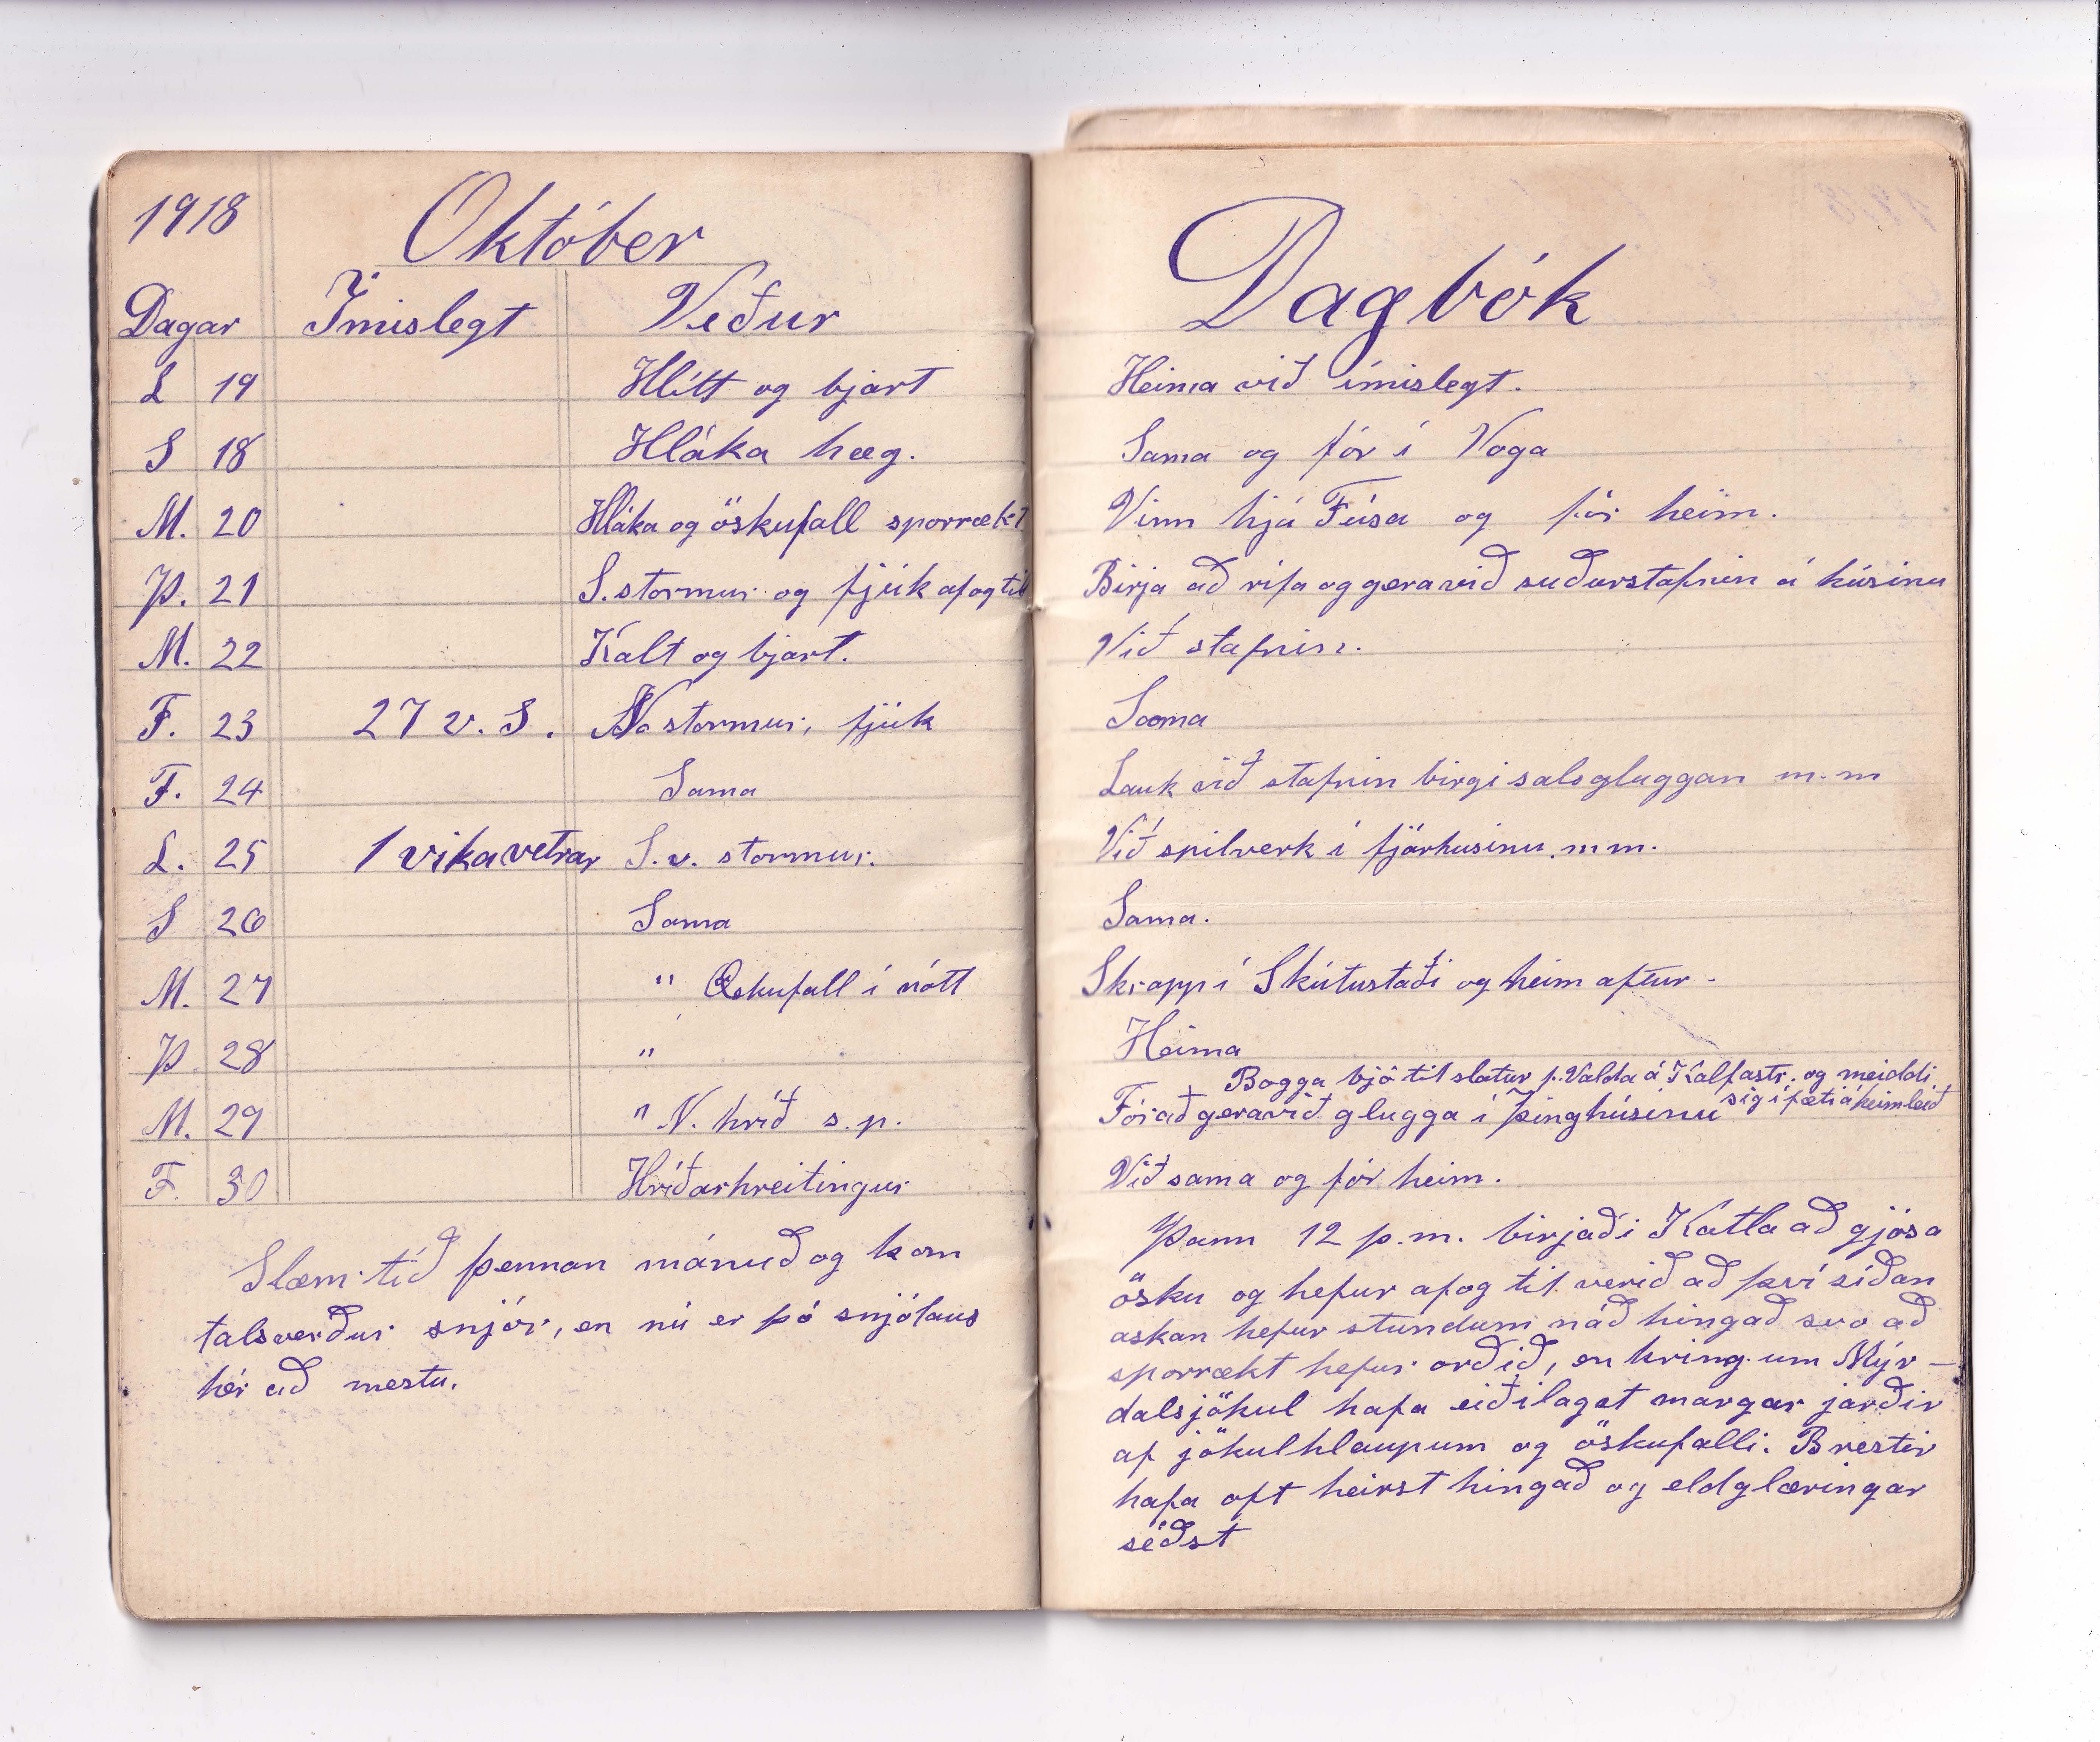 1918
Október
Dagar Ímislegt Veður
L 19 Hlítt og bjart
S 18 Hláka hæg.
M. 20 Hláka og öskufall sporrækt
Þ. 21 S. stormur og fjúk af og til
M. 22 Kalt og bjart.
F. 23 27 v. S. Na stormur, fjúk
F. 24 Sama
L. 25 1 vika vetrar S.v. stormur.
S 26 Sama
M. 27 " Öskufall í nótt
Þ 28 "
M. 29 " N. hríð s.p.
F. 30 Hríðarhreitingur
Slæm tíð þennan mánuð og kom
talsverður snjór, en nú er þó snjólaus
hér að mestu.
Dagbók
Heima við ímislegt.
Sama og fór í Voga
Vinn hjá Fúsa og fór heim.
Birja að rífa og gera við suðurstafnin á húsinu
Við stafnin.
Sama
Lauk við stafnin birgi salsgluggan m.m
Við spilverk í fjárhusinu m m.
Sama.
Skrapp í Skútustaði og heim aftur -
Heima
+ Bogga bjó til slatur f. Valda á Kalfastr. og meiddi
sig í fæti á heimleið +
Fór að gera við glugga í þinghúsinu
Við sama og fór heim.
Þann 12 þ.m. birjaði Katla að gjósa
ösku og hefur af og til verið að því síðan
askan hefur stundum náð hingað svo að
sporrækt hefur orðið, en kring um Mýr-
dalsjökul hafa eiðilagst margar jarðir
af jökulhlaupum og öskufalli. Brestir
hafa oft heirst hingað og eldglæringar
séðst